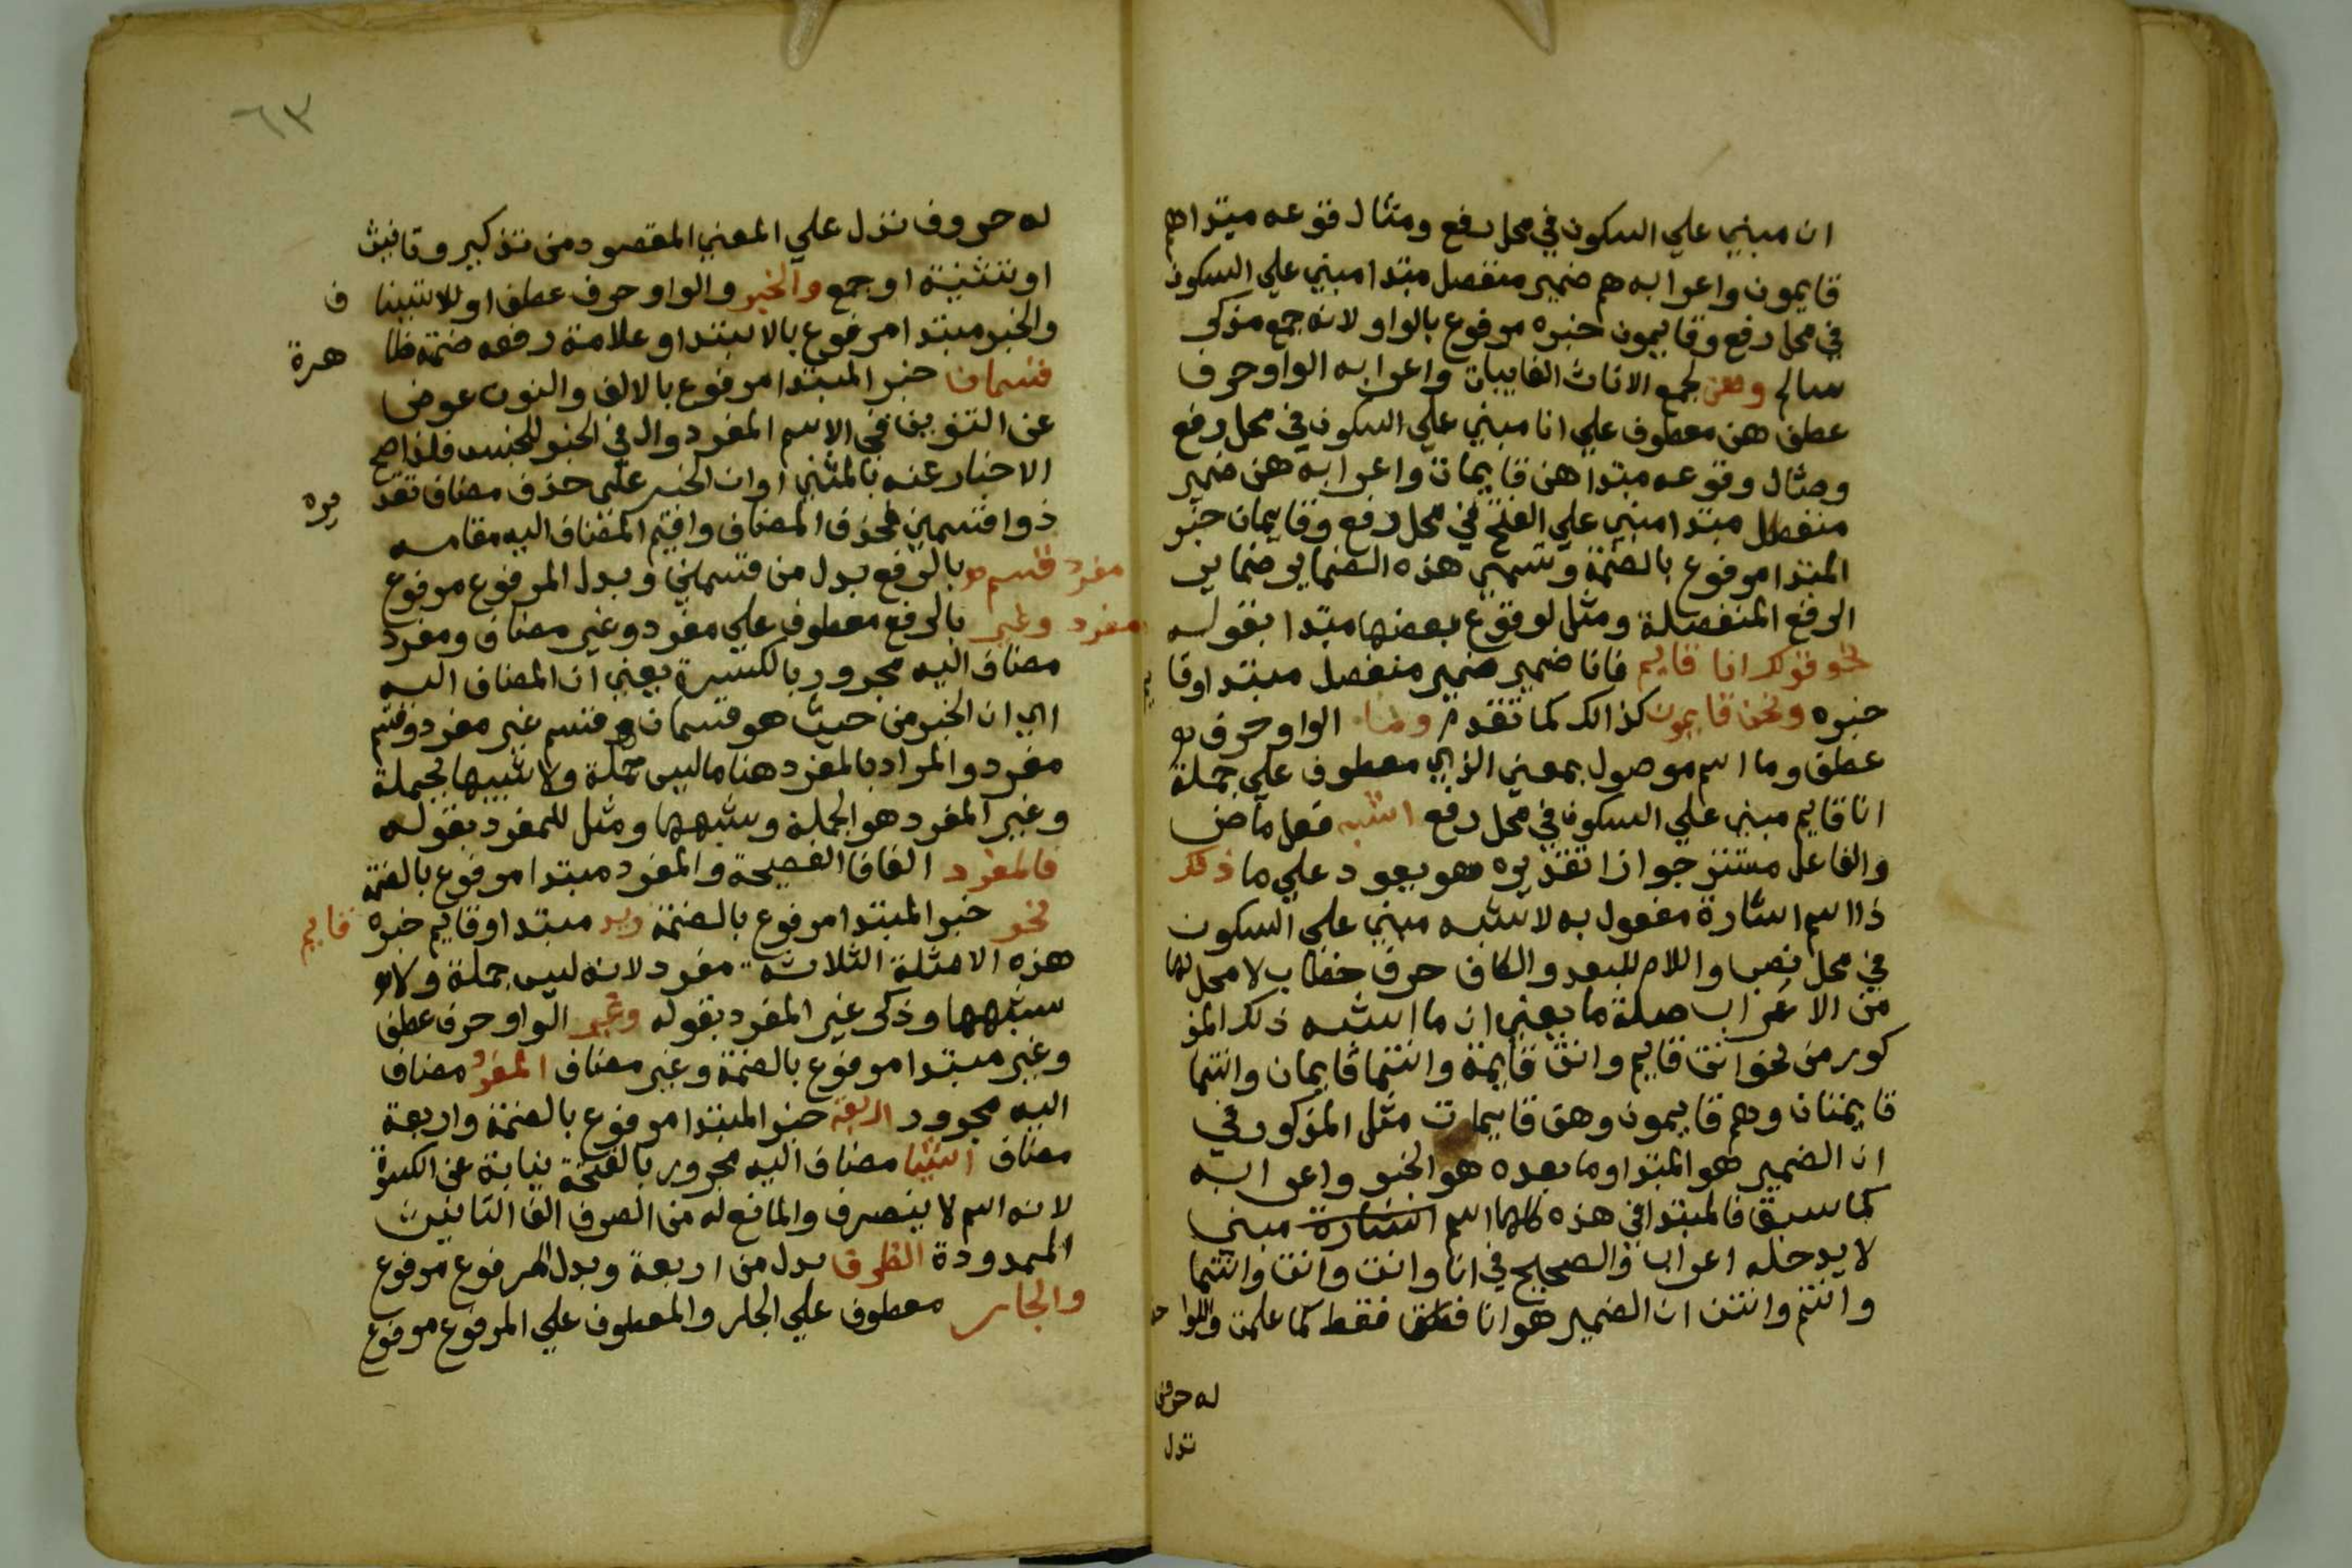 ان مبني علي السكون في محل رفع ومثال وقوعه مبتدا هم
قايمون واعرابه هم ضمير منفصل مبتدا مبني علي السكون
في محل رفع وقايمون خبره مرفوع بالواو لانه جمع مذكر
سالم وهن لجمع الاناث الغايبات واعرابه الواو حرف
عطف هن معطوف علي انا مبني علي السكون في محل رفع
ومثال وقوعه مبتدا هن قايمات واعرابه هن ضمير
منفصل مبتدا مبني علي الفتح في محل رفع وقايمات خبر
المبتدا مرفوع بالضمة وتسمي هذه الضماير ضماير
الرفع المنفصلة ومثل لوقوع بعضها مبتدا بقوله
نحو قولك انا قايم فانا ضمير ضمير منفصل مبتدا وقا
يم
خبره ونحن قايمون كذالك كما تقدم وما الواو حرف
عطف وما اسم موصول بمعني الذي معطوف علي جملة
انا قايم مبني علي السكون في محل رفع اشبه فعل ماض
والفاعل مستتر جوازا تقديره هو يعود علي ما ذلك
ذا اسم اشارة مفعول به لاشبه مبني علي السكون
في محل نصب واللام للبعد والكاف حرف خطاب لا محل لها
من الاعراب صلة ما يعني ان ما اشبه ذلك المذ
كور من نحو انت قايم وانت قايمة وانتما قايمان وانتما
قايمتان وهم قايمون وهن قايمات مثل المذكور في
ان الضمير هو المبتدا وما بعده هو الخبر واعرابه
كما سبق فالمبتدا في هذه كلها اسم اشارة مبني
لا يدخله اعراب والصحيح في انا وانت وانت وانتما
وانتم وانتن ان الضمير هو انا فقط كما علمت واللوا
له حروف
تدل
٦٣
له حروف تدل علي المعني المقصود من تذكير وتانيث
او تثنية او جمع والخبر والواو حرف عطف او للاستينا ف
والخبر مبتدا مرفوع بالابتدا وعلامة رفعه ضمة ظا هرة
قسمان خبر المبتدا مرفوع بالالف والنون عوض
عن التنوين في الاسم المفرد وال في الخبر للجنس فلذا صح
الاخبار عنه بالمثني او ان الخبر علي حذف مضاف تقد يره
ذوا قسمين فحذف المضاف واقيم المضاف اليه مقامه
مفرد قسم بالرفع بدل من قسمان وبدل المرفوع مرفوع
مفرد وغير بالرفع معطوف علي مفرد وغير مضاف ومفرد
مضاف اليه مجرور بالكسرة يعني ان المضاف اليه
اي ان الخبر من حيث هو قسمان قسم غير مفرد وقسم
مفرد والمراد بالمفرد هنا ما ليس جملة ولا شبيها بجملة
وغير المفرد هو الجملة وشبهها ومثل للمفرد بقوله
فالمفرد الفا فا الفصيحة والمفرد مبتدا مرفوع بالضمة
نحو خبر المبتدا مرفوع بالضمة زيد مبتدا وقايم خبره قايم
هذه الامثلة الثلاثة مفرد لانه ليس جملة ولا
شبهها وذكر غير المفرد بقوله وغير الواو حرف عطف
وغير مبتدا مرفوع بالضمة وغير مضاف المفرد مضاف
اليه مجرور اربعة خبر المبتدا مرفوع بالضمة واربعة
مضاف اشيا مضاف اليه مجرور بالفتحة نيابة عن الكسرة
لانه اسم لا ينصرف والمانع له من الصرف الف التانيث
الممدودة الظرف بدل من اربعة وبدل المرفوع مرفوع
والجار معطوف علي الجار والمعطوف علي المرفوع مرفوع